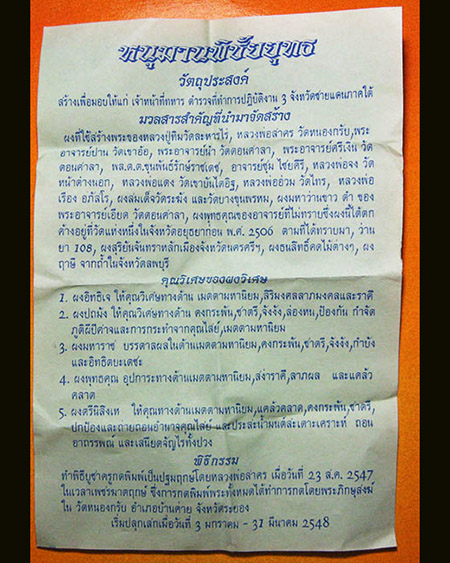 หนุมานพิชัยยุทธ
วัตถุประสงค์
สร้างเพื่อมอบให้แก่ เจ้าหน้าที่ทหาร ตำรวจที่ทำการปฏิบัติงาน 3 จังหวัดชายแดนภาคใต้
มวลสารสำคัญที่นำมาจัดสร้าง
ผงที่ใช้สร้างพระของหลวงปู่ทิมวัดละหารไร่, หลวงพ่อสาคร วัดหนองกรับ,พระ
อาจารย์ปาน วัดเขาอ้อ, พระอาจารย์นำ วัดดอนศาลา, พระอาจารย์ศรีเงิน วัด
ดอนศาลา, พล.ต.ต.ขุนพันธ์รักษ์ราชเดช, อาจารย์ชุม ไชยคีรี, หลวงพ่อจง วัด
หน้าต่างนอก, หลวงพ่อแดง วัดเขาบันไดอิฐ, หลวงพ่ออ่วม วัดไทร, หลวงพ่อ
เรือง อภัสโร, ผงสมเด็จวัดระฆัง และวัดบางขุนพรหม, ผงมหาว่านขาว ดำ ของ
พระอาจารย์เอียด วัดดอนศาลา, ผงพุทธคุณของอาจารย์ที่ไม่ทราบชื่อผงนี้ได้ตก
ค้างอยู่ที่วัดแห่งหนึ่งในจังหวัดอยุธยาก่อน พ.ศ. 2506 ตามที่ได้ทราบมา, ว่าน
ยา 108, ผงสุริยันจันทราหลักเมืองจังหวัดนครศรีฯ, ผงธนสิทธิ์คดไม้ต่างๆ, ผง
ฤาษี จากถ้ำในจังหวัดลพบุรี
คุณวิเศษของผงวิเศษ
1. ผงอิทธิเจ ให้คุณวิเศษทางด้าน เมตตามหานิยม,สิริมงคลลาภมงคลและราศี
2. ผงปถมัง ให้คุณวิเศษทางด้าน คงกระพัน,ชาตรี,จังงัง,ล่องหน,ป้องกัน กำจัด
ภูติผีปีศาจและการกระทำจากคุณไสย์,เมตตามหานิยม
3. ผงมหาราช บรรดาลผลในด้านเมตตามหานิยม,คงกระพัน,ชาตรี,จังงัง,กำบัง
และอิทธิตบะเตชะ
4. ผงพุทธคุณ อุปการะทางด้านเมตตามหานิยม,สง่าราศี,ลาภผล และแคล้ว
คลาด
5. ผงตรีนิสิงเห ให้คุณทางด้านเมตตามหานิยม,แคล้วคลาด,คงกระพัน,ชาตรี,
ปกป้องและถ่ายถอนอำนาจคุณไสย์ และประสะน้ำมนต์สะเดาะเคราะห์ ถอน
อาถรรพณ์ และเสนียดจัญไรทั้งปวง
พิธีกรรม
ทำพิธีบูชาครูกดพิมพ์เป็นปฐมฤกษ์โดยหลวงพ่อสาคร เมื่อวันที่ 23 ส.ค. 2547
ในเวลาเพชรฆาตฤกษ์ ซึ่งการกดพิมพ์พระทั้งหมดได้ทำการกดโดยพระภิกษุสงฆ์
ใน วัดหนองกรับ อำเภอบ้านค่าย จังหวัดระยอง
เริ่มปลุกเสกเมื่อวันที่ 3 มกราคม - 31 มีนาคม 2548